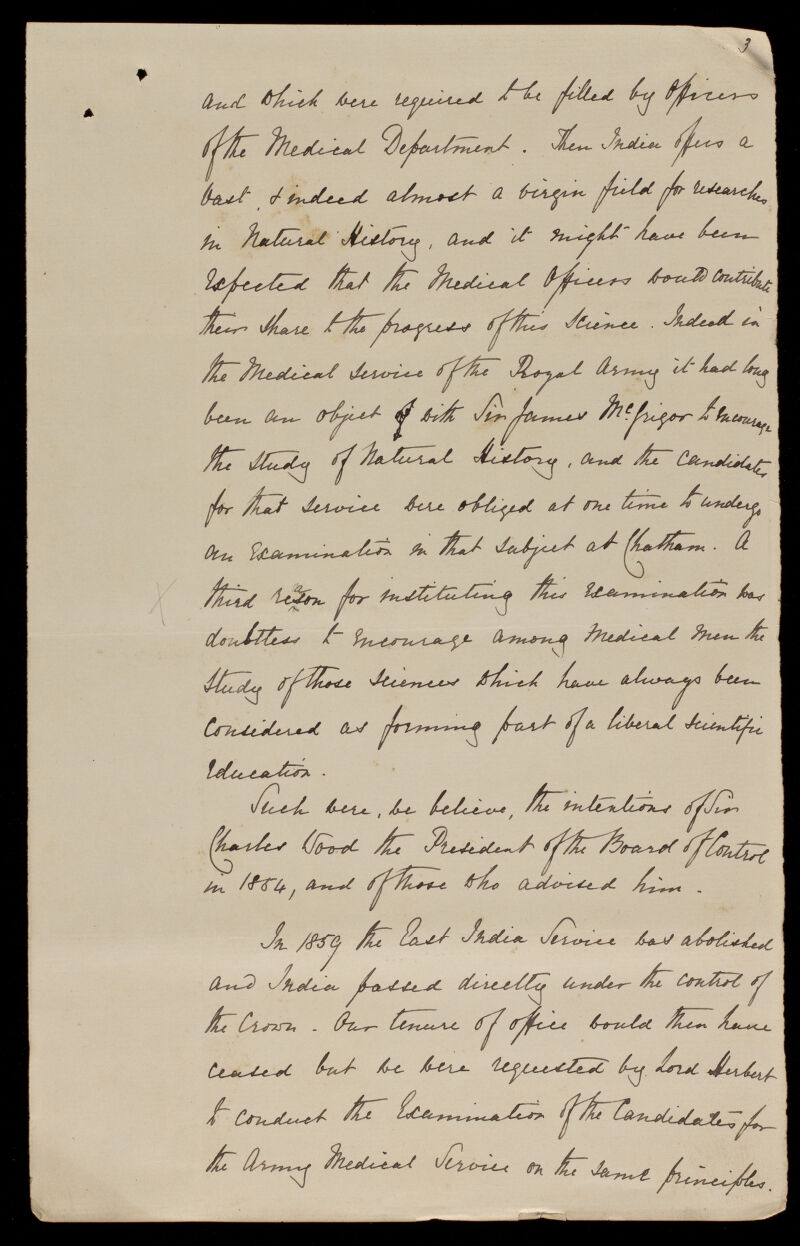 3
and which were required to be filled by Officers
of the Medical Department. Then India offers a
vast, & indeed almost a virgin field for researches
in Natural History, and it might have been
expected that the Medical Officers would contribute
their share to the progress of this science. Indeed in
the Medical Service of the Royal Army it had long
been an object with Sir James McGrigor to encourage
the study of Natural History, and the candidates
for that service were obliged at one time to undergo
an Examination in that subject at Chatham. A
third reason for instituting this Examination was
doubtless to encourage among Medical men the
study of those sciences which have always been
considered as forming part of a liberal scientific
education.
Such were, we believe, the intentions of Sir
Charles Wood the President of the Board of Control
in 1854, and of those who advised him.
In 1859 the East India Service was abolished
and India passed directly under the control of
the Crown. Our tenure of office would then have
ceased but we were requested by Lord Herbert
to conduct the Examination of the Candidates for
the Army Medical Service on the same principles.